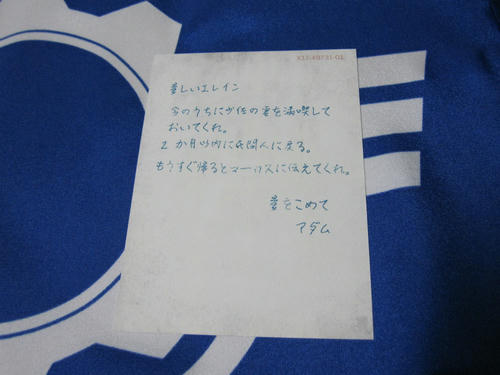 愛しいエレイン
今のうちに少佐の妻を満喫して
おいてくれ。
2か月以内に民間人に戻る。
もうすぐ帰るとマーカスに伝えてくれ。
愛をこめて
アダム